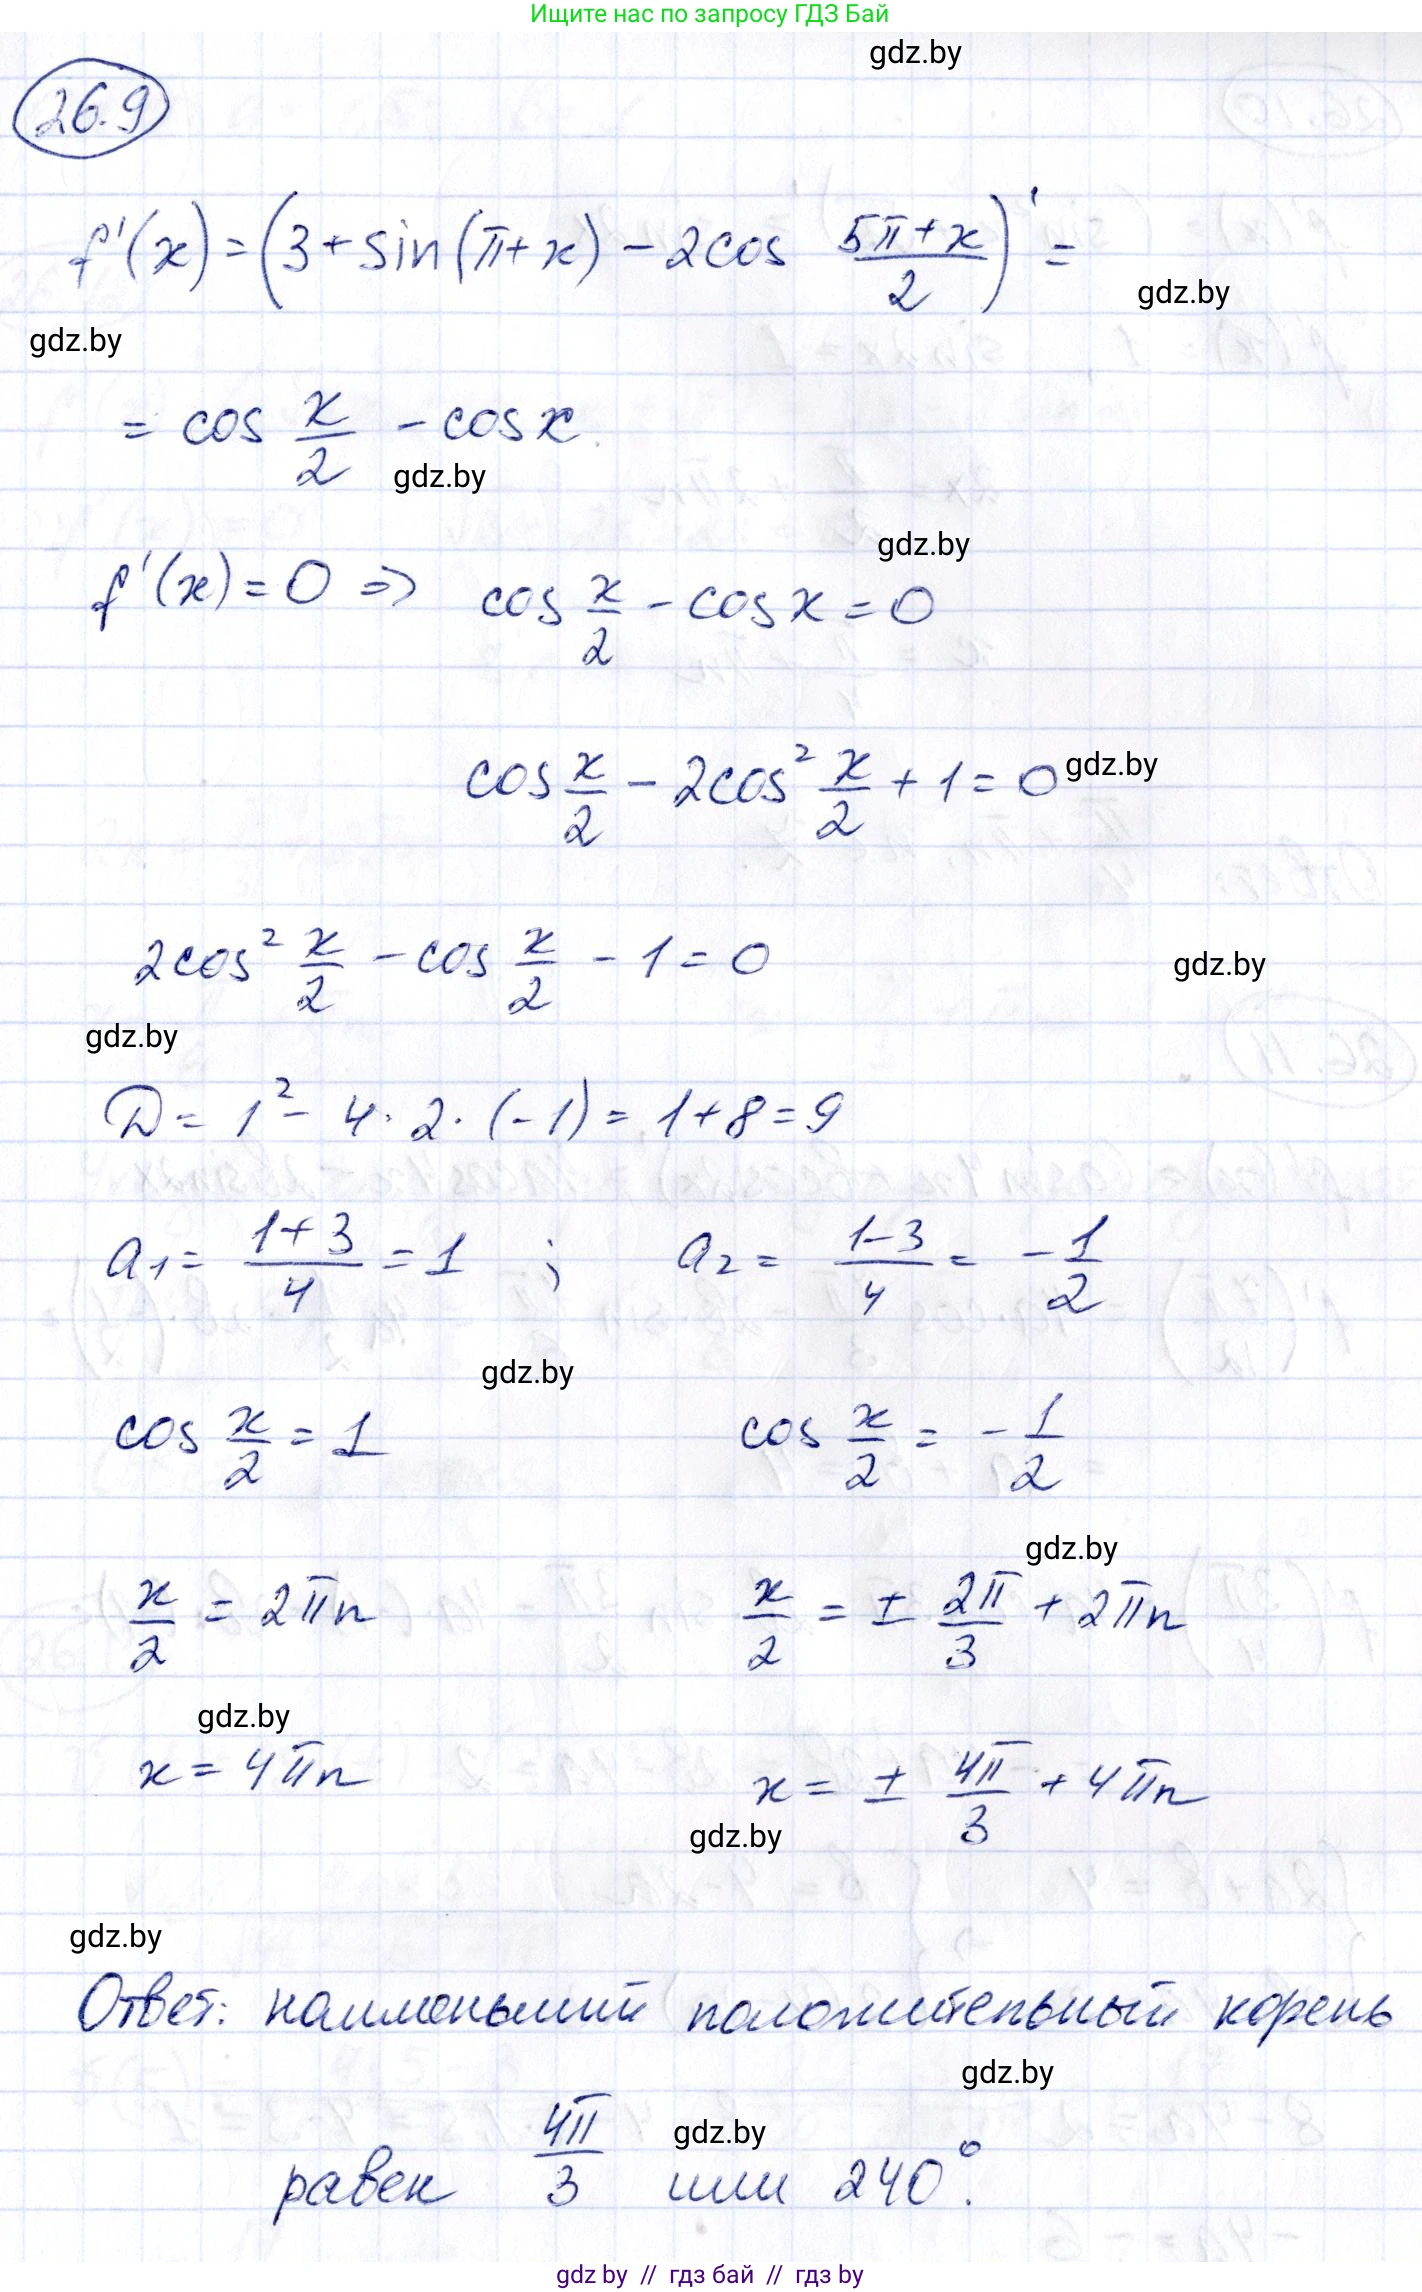 Ищите нас по запросу ГДЗ Бай
gdz.by
26.9
f'(x) = (3 + sin(π + x) - 2cos (5π + x)/2)' =
gdz.by
gdz.by
= cos x/2 - cos x.
gdz.by
gdz.by
f'(x) = 0 => cos x/2 - cos x = 0
cos x/2 - 2cos² x/2 + 1 = 0
gdz.by
2cos² x/2 - cos x/2 - 1 = 0
gdz.by
gdz.by
D = 1² - 4 · 2 · (-1) = 1 + 8 = 9
a₁ = (1+3)/4 = 1 ; a₂ = (1-3)/4 = -1/2
gdz.by
cos x/2 = 1 cos x/2 = -1/2
gdz.by
x/2 = 2πn x/2 = ± 2π/3 + 2πn
gdz.by
x = 4πn x = ± 4π/3 + 4πn
gdz.by
gdz.by
Ответ: наименьший положительный корень
gdz.by
равен 4π/3 или 240°.
gdz.by
gdz by // гдз бай // гдз by